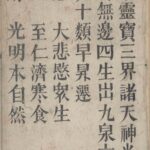 靈寶三界諸天神光
無邊四生出九泉
十類早昇遷
大悲愍衆生
至仁濟寒食
光明本自然